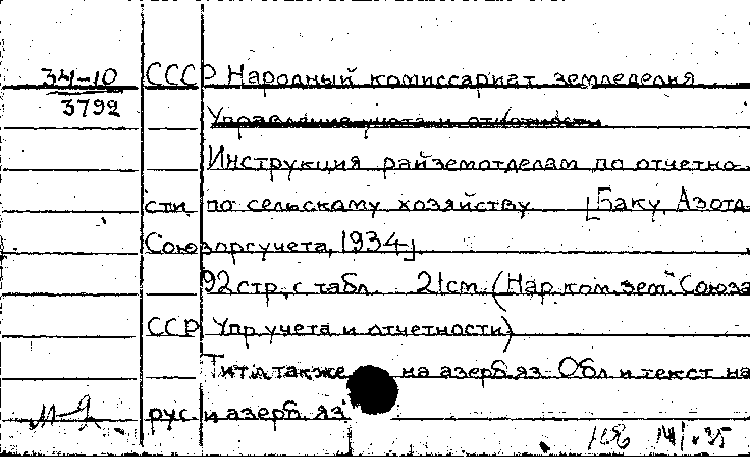 34-10 СССР Народный комиссариат земледелия
3792 Управление учета и отчетности
Инструкция райземотделам по отчетно-
сти по сельскому хозяйству [Баку, Азотд.
Союзоргучета, 1934]
92 стр. с табл. 21 см. (Нар. ком. зем. Союза
ССР Упр. учета и отчетности)
Тит. л. также на азерб. яз. Обл. и текст на
рус. и азерб. яз.